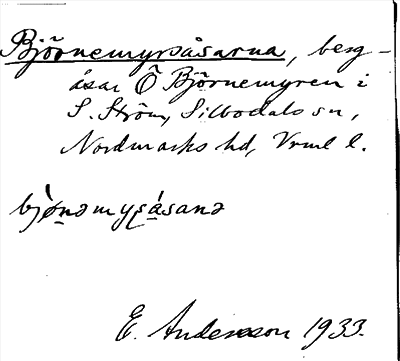 Björnemyråsarna, berg-
åsar Ö Björnemyren i
S. Ström, Silbodals sn,
Nordmarks hd, Vrml l.
bjø̀nəmyʂásanə
E. Andersson 1933.